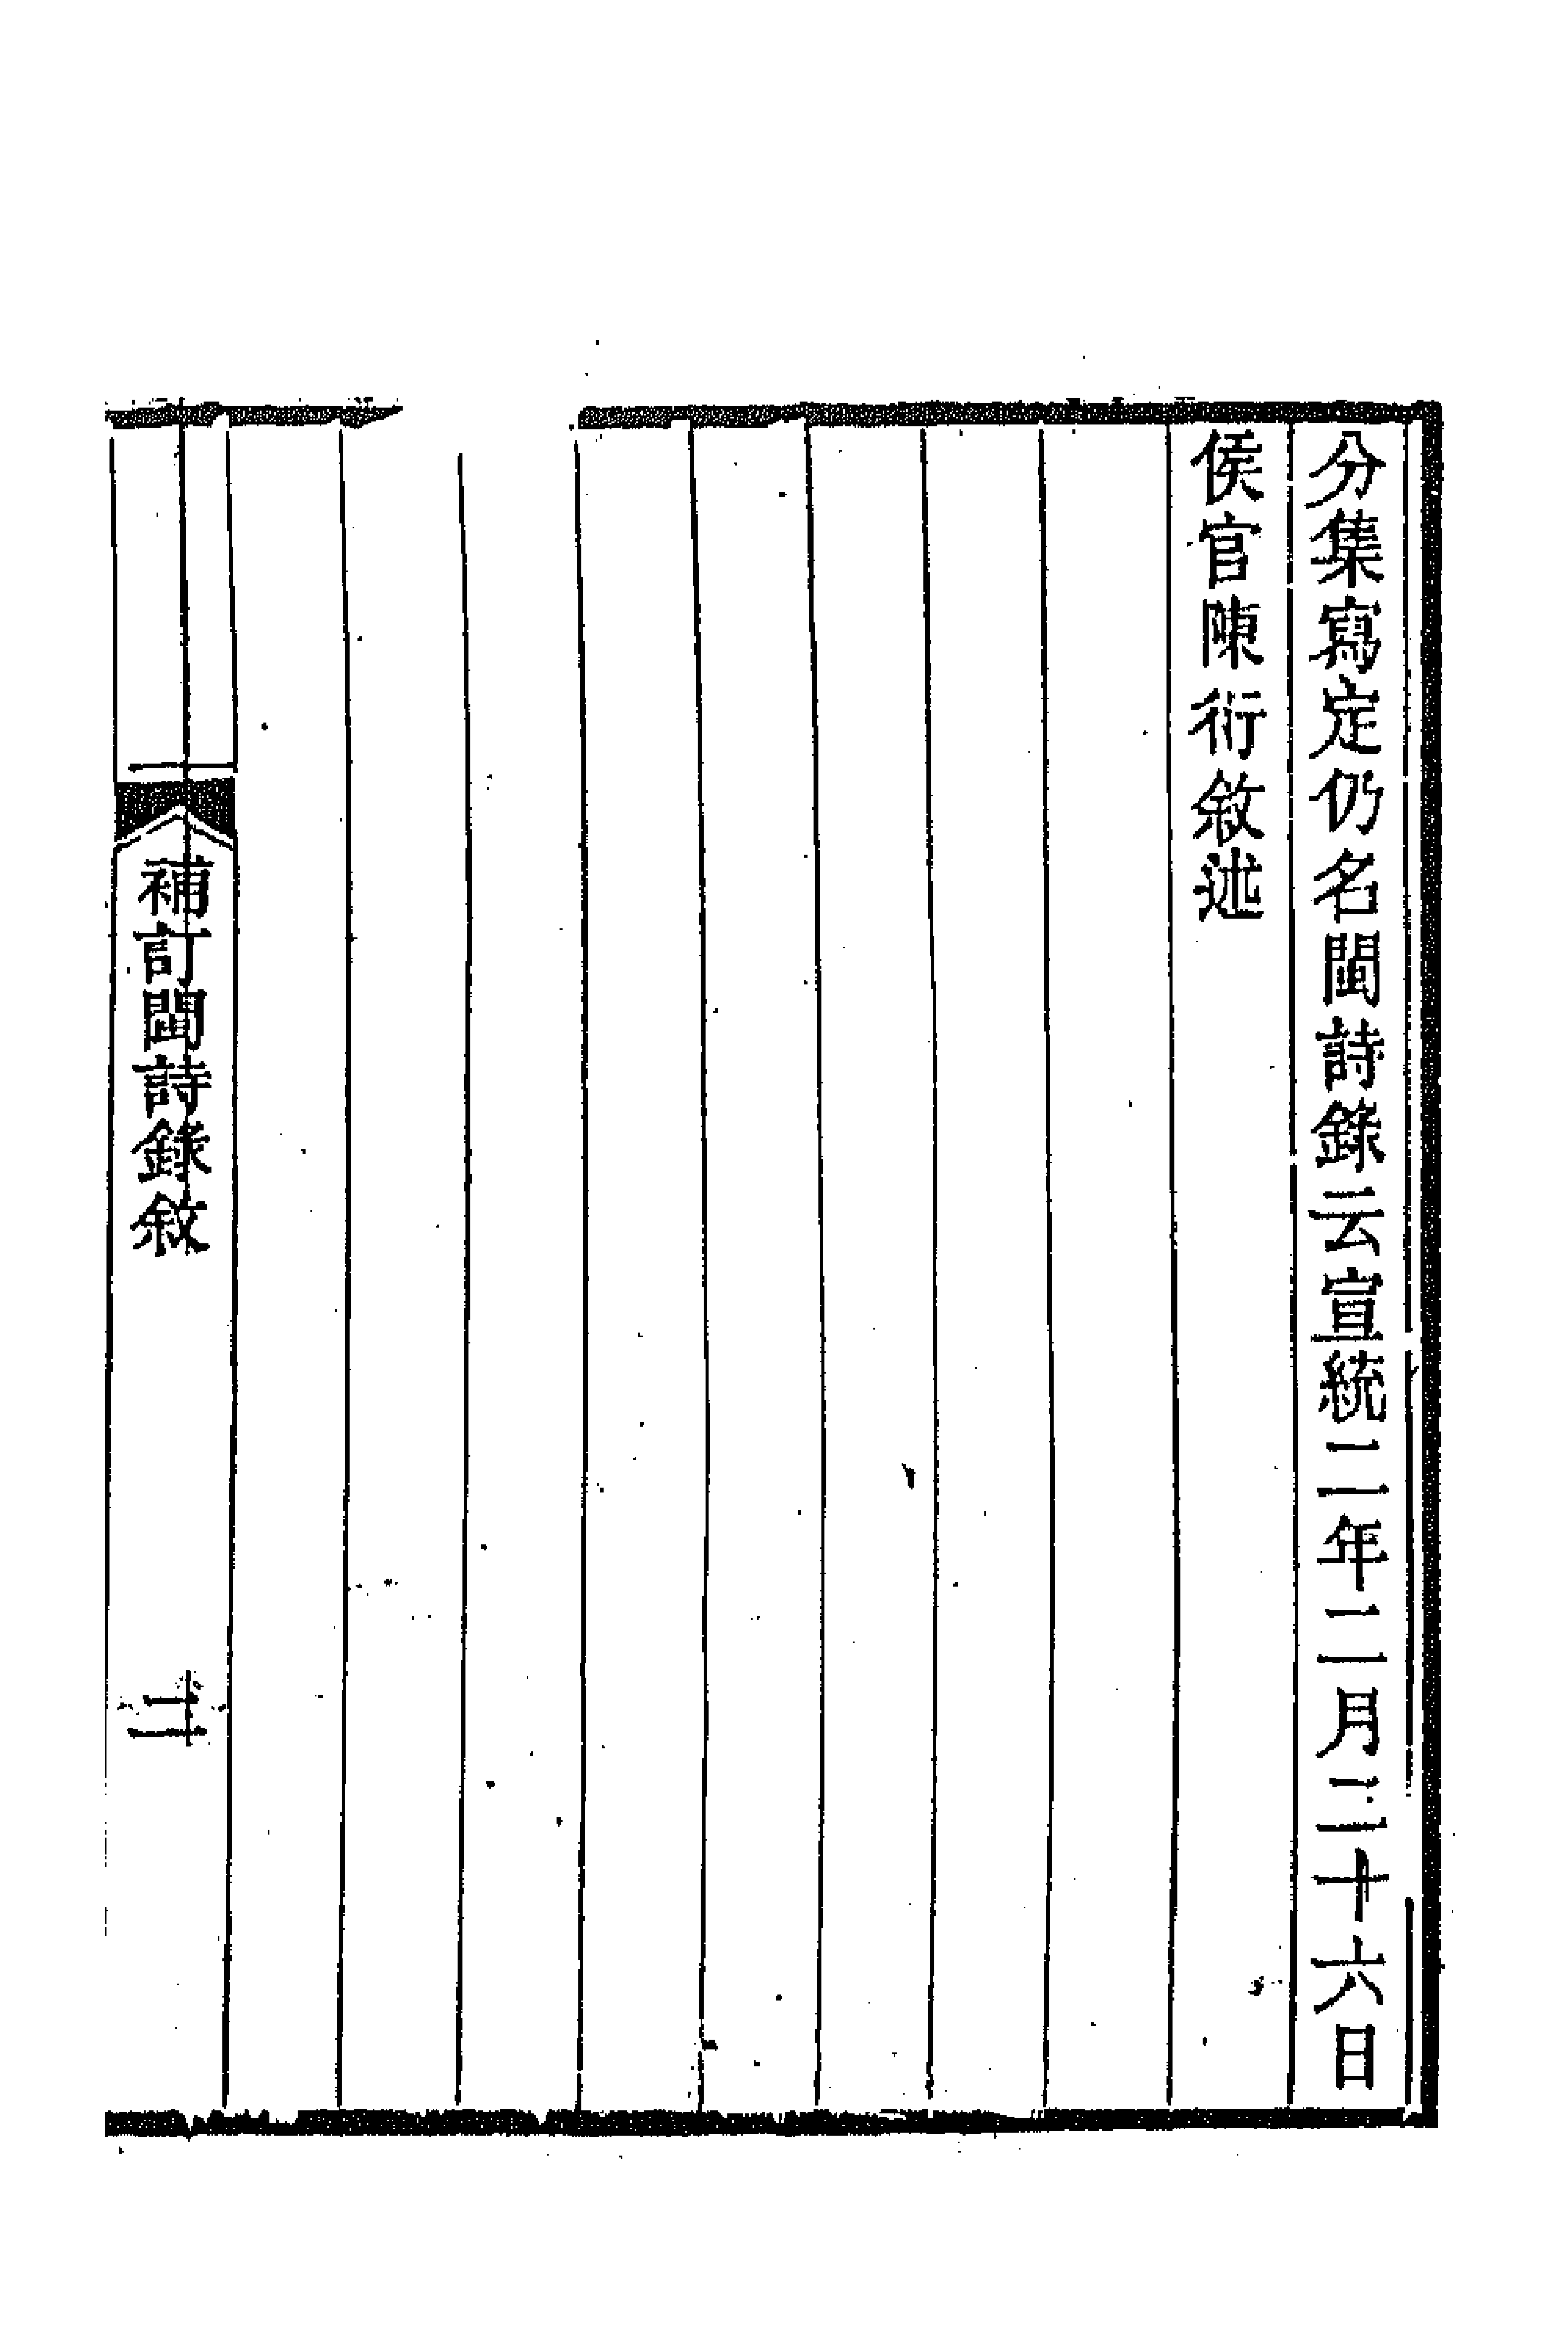 分集寫定仍名閩詩錄云宣統二年二月二十六日
侯官陳衍敘述
補訂閩詩錄敘
二